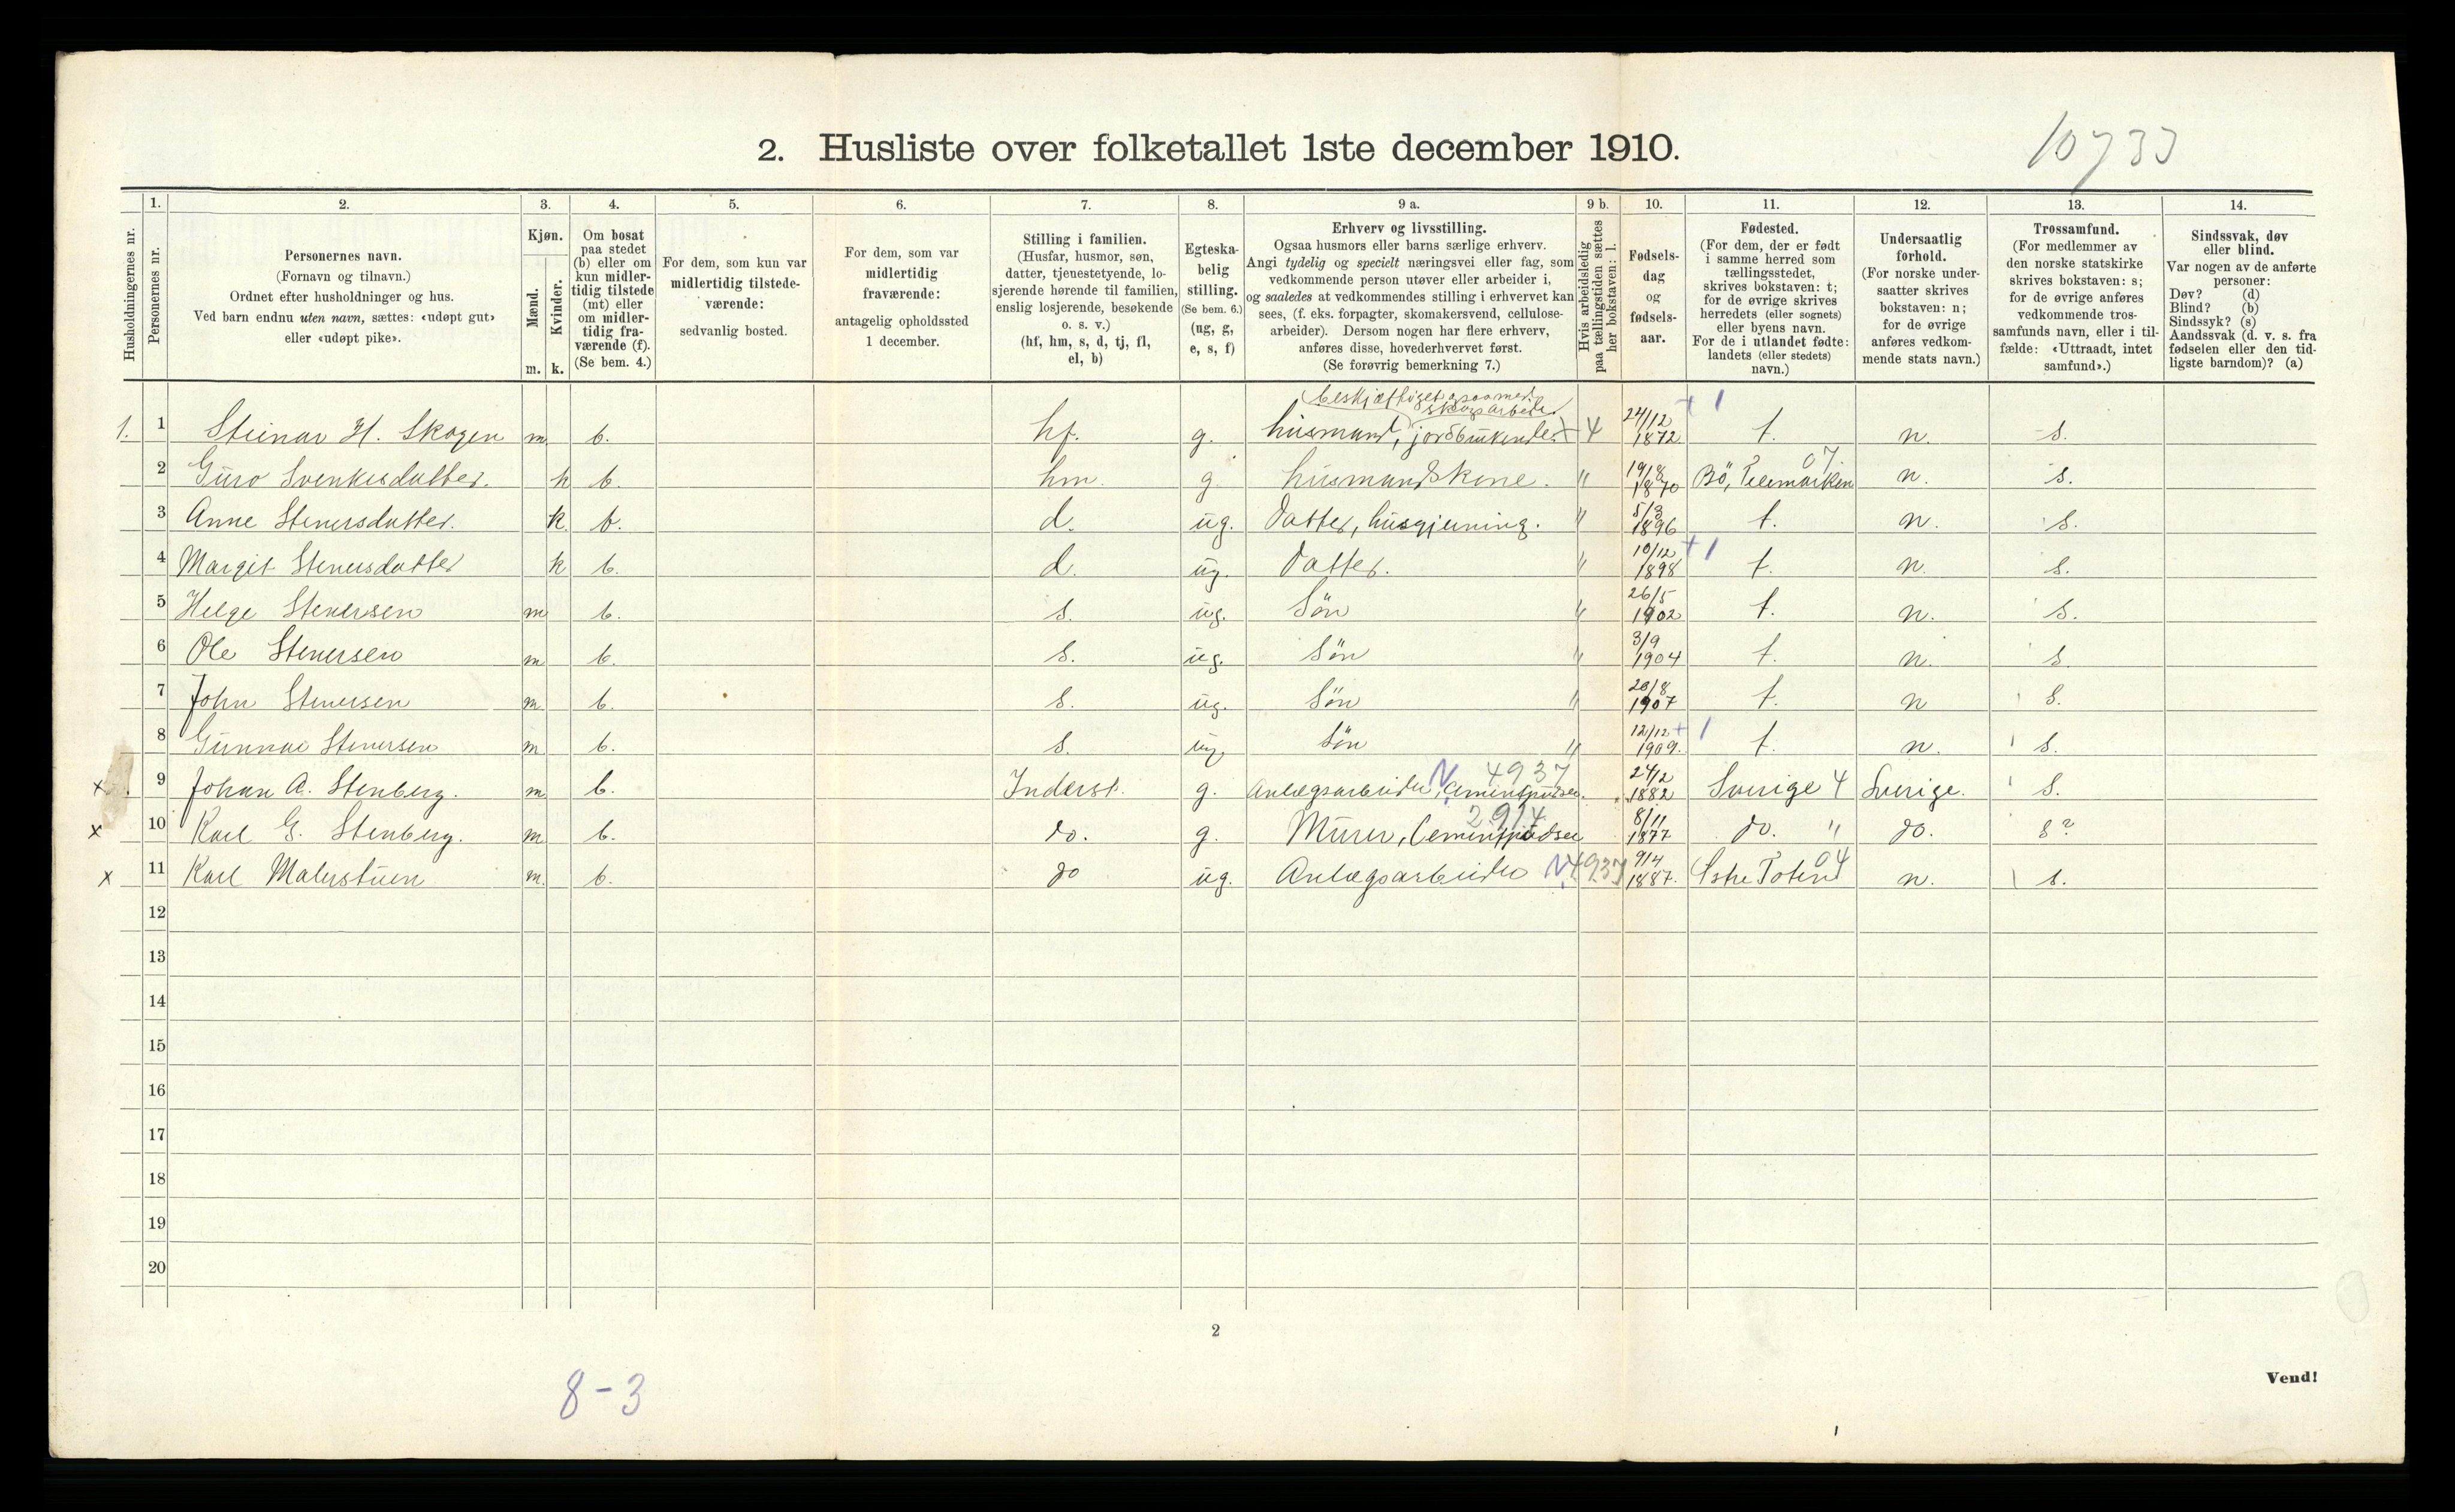 10733
2. Husliste over folketallet 1ste december 1910.
Husholdningernes nr.
1.
Personernes nr.
2.
Personernes navn.
(Fornavn og tilnavn.)
Ordnet efter husholdninger og hus.
Ved barn endnu uten navn, sættes: «udøpt gut»
eller «udøpt pike».
3.
Kjøn.
Mænd.
Kvinder.
m. k.
4.
Om bosat
paa stedet
(b) eller om
kun midler-
tidig tilstede
(mt) eller
om midler-
tidig fra-
værende (f).
(Se bem. 4.)
5.
For dem, som kun var
midlertidig tilstede-
værende:
sedvanlig bosted.
6.
For dem, som var
midlertidig
fraværende:
antagelig opholdssted
1 december.
7.
Stilling i familien.
(Husfar, husmor, søn,
datter, tjenestetyende, lo-
sjerende hørende til familien,
enslig losjerende, besøkende
o. s. v.)
(hf, hm, s, d, tj, fl,
el, b)
8.
Egteska-
belig
stilling.
(Se bem. 6.)
(ug, g,
e, s, f)
9 a.
Erhverv og livsstilling.
Ogsaa husmors eller barns særlige erhverv.
Angi tydelig og specielt næringsvei eller fag, som
vedkommende person utøver eller arbeider i,
og saaledes at vedkommendes stilling i erhvervet kan
sees, (f. eks. forpagter, skomakersvend, cellulose-
arbeider). Dersom nogen har flere erhverv,
anføres disse, hovederhvervet først.
(Se forøvrig bemerkning 7.)
9 b.
Hvis arbeidsledig
paa tællingstiden sættes
her bokstaven: l.
10.
Fødsels-
dag
og
fødsels-
aar.
11.
Fødested.
(For dem, der er født
i samme herred som
tællingsstedet,
skrives bokstaven: t;
for de øvrige skrives
herredets (eller sognets)
eller byens navn.
For de i utlandet fødte:
landets (eller stedets)
navn.)
12.
Undersaatlig
forhold.
(For norske under-
saatter skrives
bokstaven: n;
for de øvrige
anføres vedkom-
mende stats navn.)
13.
Trossamfund.
(For medlemmer av
den norske statskirke
skrives bokstaven: s;
for de øvrige anføres
vedkommende tros-
samfunds navn, eller i til-
fælde: «Uttraadt, intet
samfund».)
14.
Sindssvak, døv
eller blind.
Var nogen av de anførte
personer:
Døv? (d)
Blind? (b)
Sindssyk? (s)
Aandssvak (d. v. s. fra
fødselen eller den tid-
ligste barndom)? (a)
(beskjæftiget ogsaa med
skogsarbeide)
1. 1 Steinar H. Skogen m b. hf. g. husmand, jordbrukende. 4 24/12 1872 + 1 t. n. s.
2 Guro Svenkesdatter. k b. hm. g husmandskone. " 19/8 1870 Bö, Telemarken 07 n. s.
3 Anne Stenersdatter. k. b. d. ug. Datter, husgjerning. " 5/3 1896 t. n. s.
4 Margit Stenersdatter k b. d. ug. Datter. " 10/12 1898 + 1 t. n. s.
5 Helge Stenersen m b. s. ug. Sön " 26/5 1902 t. n. s.
6 Ole Stenersen m b. s. ug. Sön " 3/9 1904 t. n. s.
7 John Stenersen m b. s. ug. Sön " 20/8 1907 t. n s.
8 Gunnar Stenersen m b. s. ug. Sön " 12/12 1909. + 1 t. n. s.
x 9 Johan A. Stenberg. m b. Inderst. g. Anlægsarbeider, Cementpudser. N 4937 24/2 1882 Sverige 4 Sverige. s.
x 10 Karl G. Stenberg. m b. do. g. Murer, Cementpudser 2914 8/11 1877 do. " do. s?
x 11 Karl Malerstuen m. b. do ug. Anlægsarbeider N 4937 9/4 1887. Østre Toten 04 n. s.
12
13
14
15
16
17
18
19
20
2
8-3
Vend!